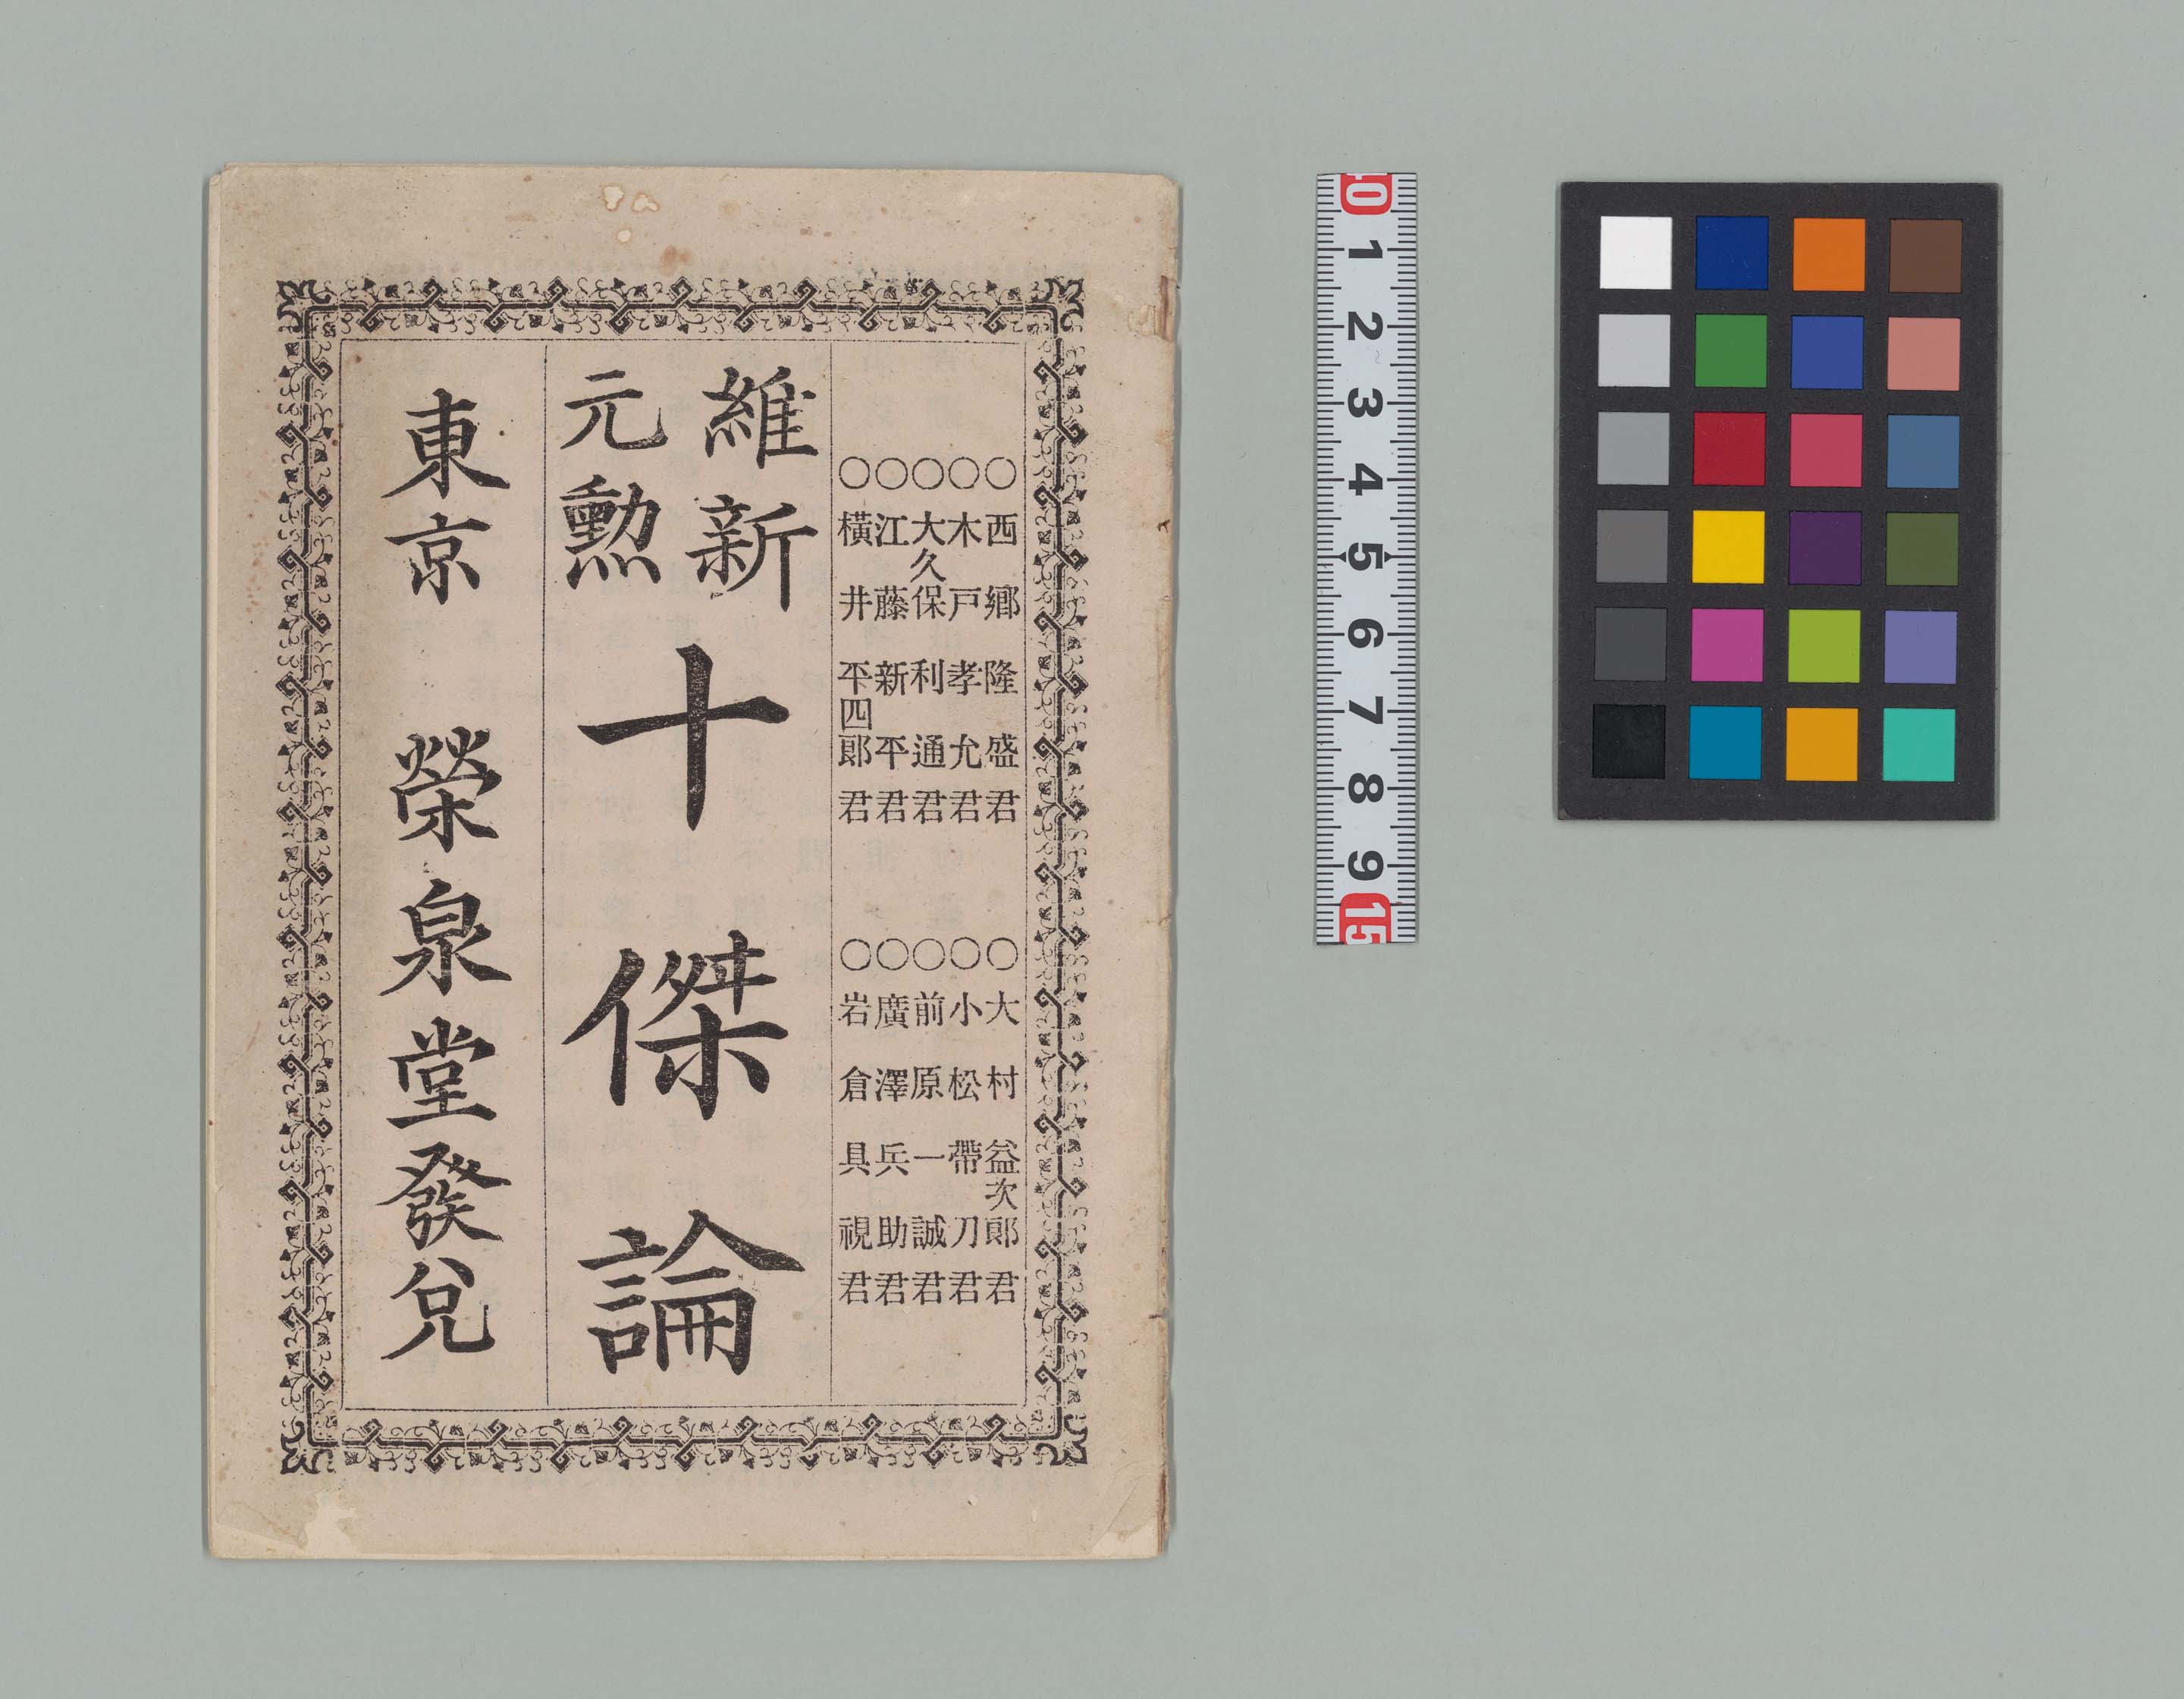 ○西郷隆盛君
○木戸孝允君
○大久保利通君
○江藤新平君
○横井平四郎君
○大村益次郎君
○小松帶刀君
○前原一誠君
○廣澤兵助君
○岩倉具視君
維新
元勲
十傑論
東京 榮泉堂發兌
10
1
2
3
4
5
6
7
8
9
15